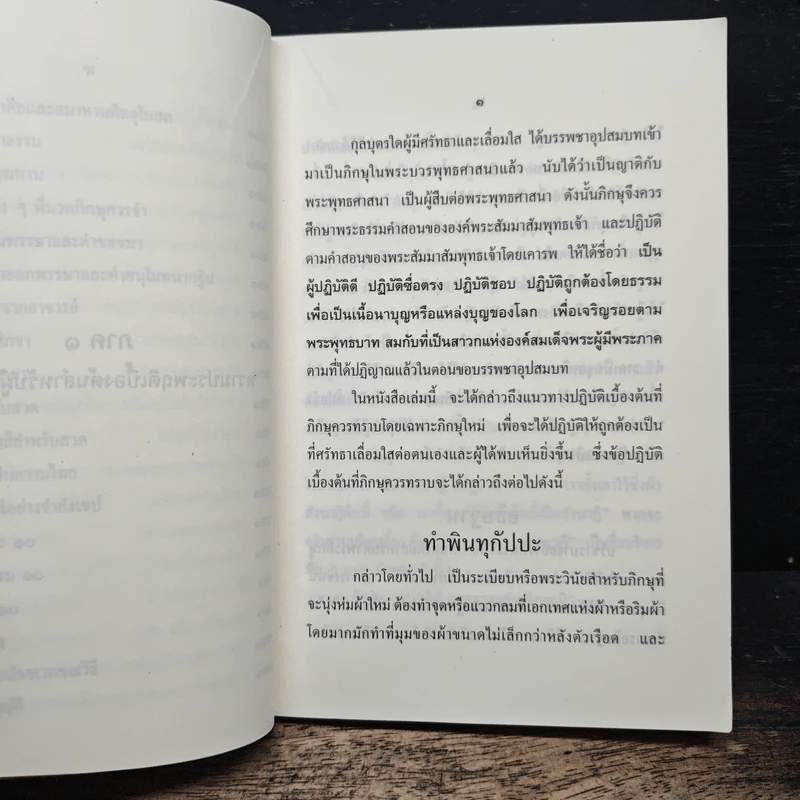 ๑
กุลบุตรใดผู้มีศรัทธาและเลื่อมใส ได้บรรพชาอุปสมบทเข้า
มาเป็นภิกษุในพระบวรพุทธศาสนาแล้ว นับได้ว่าเป็นญาติกับ
พระพุทธศาสนา เป็นผู้สืบต่อพระพุทธศาสนา ดังนั้นภิกษุจึงควร
ศึกษาพระธรรมคำสอนขององค์พระสัมมาสัมพุทธเจ้า และปฏิบัติ
ตามคำสอนของพระสัมมาสัมพุทธเจ้าโดยเคารพ ให้ได้ชื่อว่า เป็น
ผู้ปฏิบัติดี ปฏิบัติซื่อตรง ปฏิบัติชอบ ปฏิบัติถูกต้องโดยธรรม
เพื่อเป็นเนื้อนาบุญหรือแหล่งบุญของโลก เพื่อเจริญรอยตาม
พระพุทธบาท สมกับที่เป็นสาวกแห่งองค์สมเด็จพระผู้มีพระภาค
ตามที่ได้ปฏิญาณแล้วในตอนขอบรรพชาอุปสมบท
ในหนังสือเล่มนี้ จะได้กล่าวถึงแนวทางปฏิบัติเบื้องต้นที่
ภิกษุควรทราบโดยเฉพาะภิกษุใหม่ เพื่อจะได้ปฏิบัติให้ถูกต้องเป็น
ที่ศรัทธาเลื่อมใสต่อตนเองและผู้ได้พบเห็นยิ่งขึ้น ซึ่งข้อปฏิบัติ
เบื้องต้นที่ภิกษุควรทราบจะได้กล่าวถึงต่อไปดังนี้
ทำพินทุกัปปะ
กล่าวโดยทั่วไป เป็นระเบียบหรือพระวินัยสำหรับภิกษุที่
จะนุ่งห่มผ้าใหม่ ต้องทำจุดหรือแววกลมที่เอกเทศแห่งผ้าหรือริมผ้า
โดยมากมักทำที่มุมของผ้าขนาดไม่เล็กกว่าหลังตัวเรือด และ